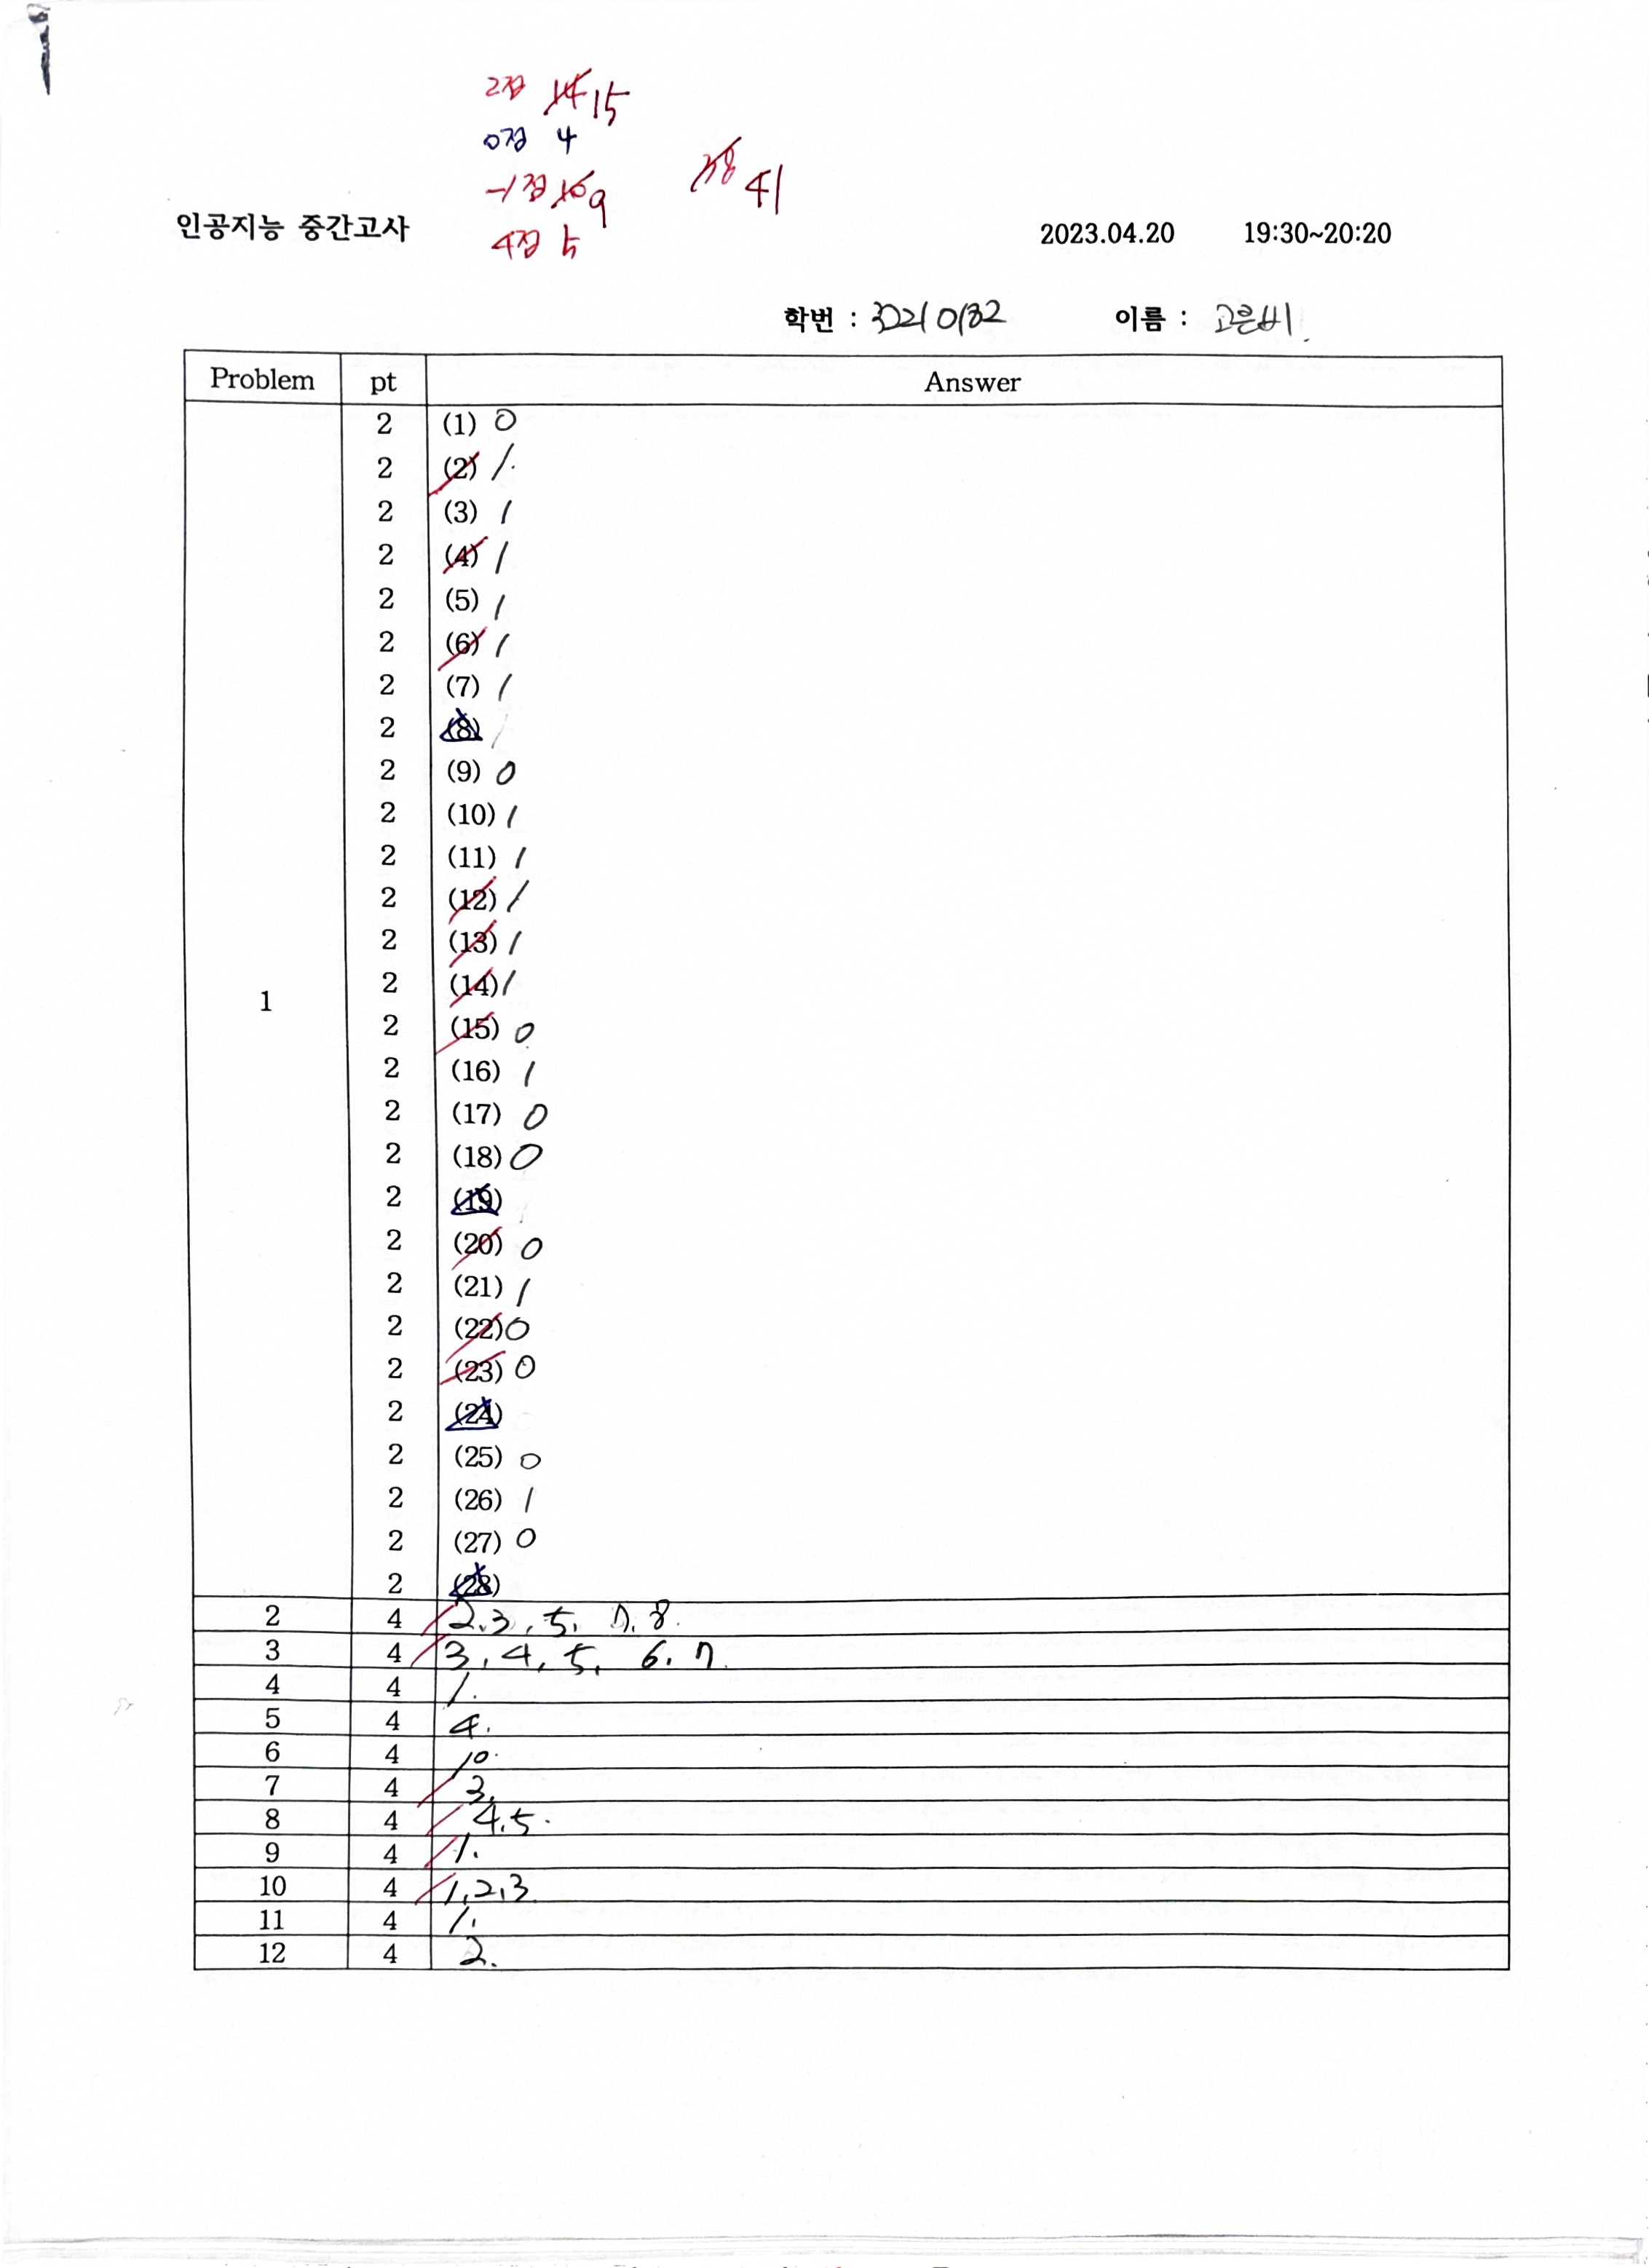 2점 14 15
0점 4
-1점 10 9
38 41
4점 5
인공지능 중간고사 2023.04.20 19:30~20:20
학번 : 이름 : 고은비
Problem pt Answer
1
2 (1) 0
2 (2) 1.
2 (3) 1
2 (4) 1
2 (5) 1
2 (6) 1
2 (7) 1
2 (8) 1
2 (9) 0
2 (10) 1
2 (11) 1
2 (12) 1
2 (13) 1
2 (14) 1
2 (15) 0
2 (16) 1
2 (17) 0
2 (18) 0
2 (19)
2 (20) 0
2 (21) 1
2 (22) 0
2 (23) 0
2 (24)
2 (25) 0
2 (26) 1
2 (27) 0
2 (28)
2 4 2.3, 5, 7.8.
3 4 3, 4, 5, 6, 7.
4 4 1.
5 4 4.
6 4 10.
7 4 3.
8 4 4.5.
9 4 1.
10 4 1,2,3.
11 4 1.
12 4 2.